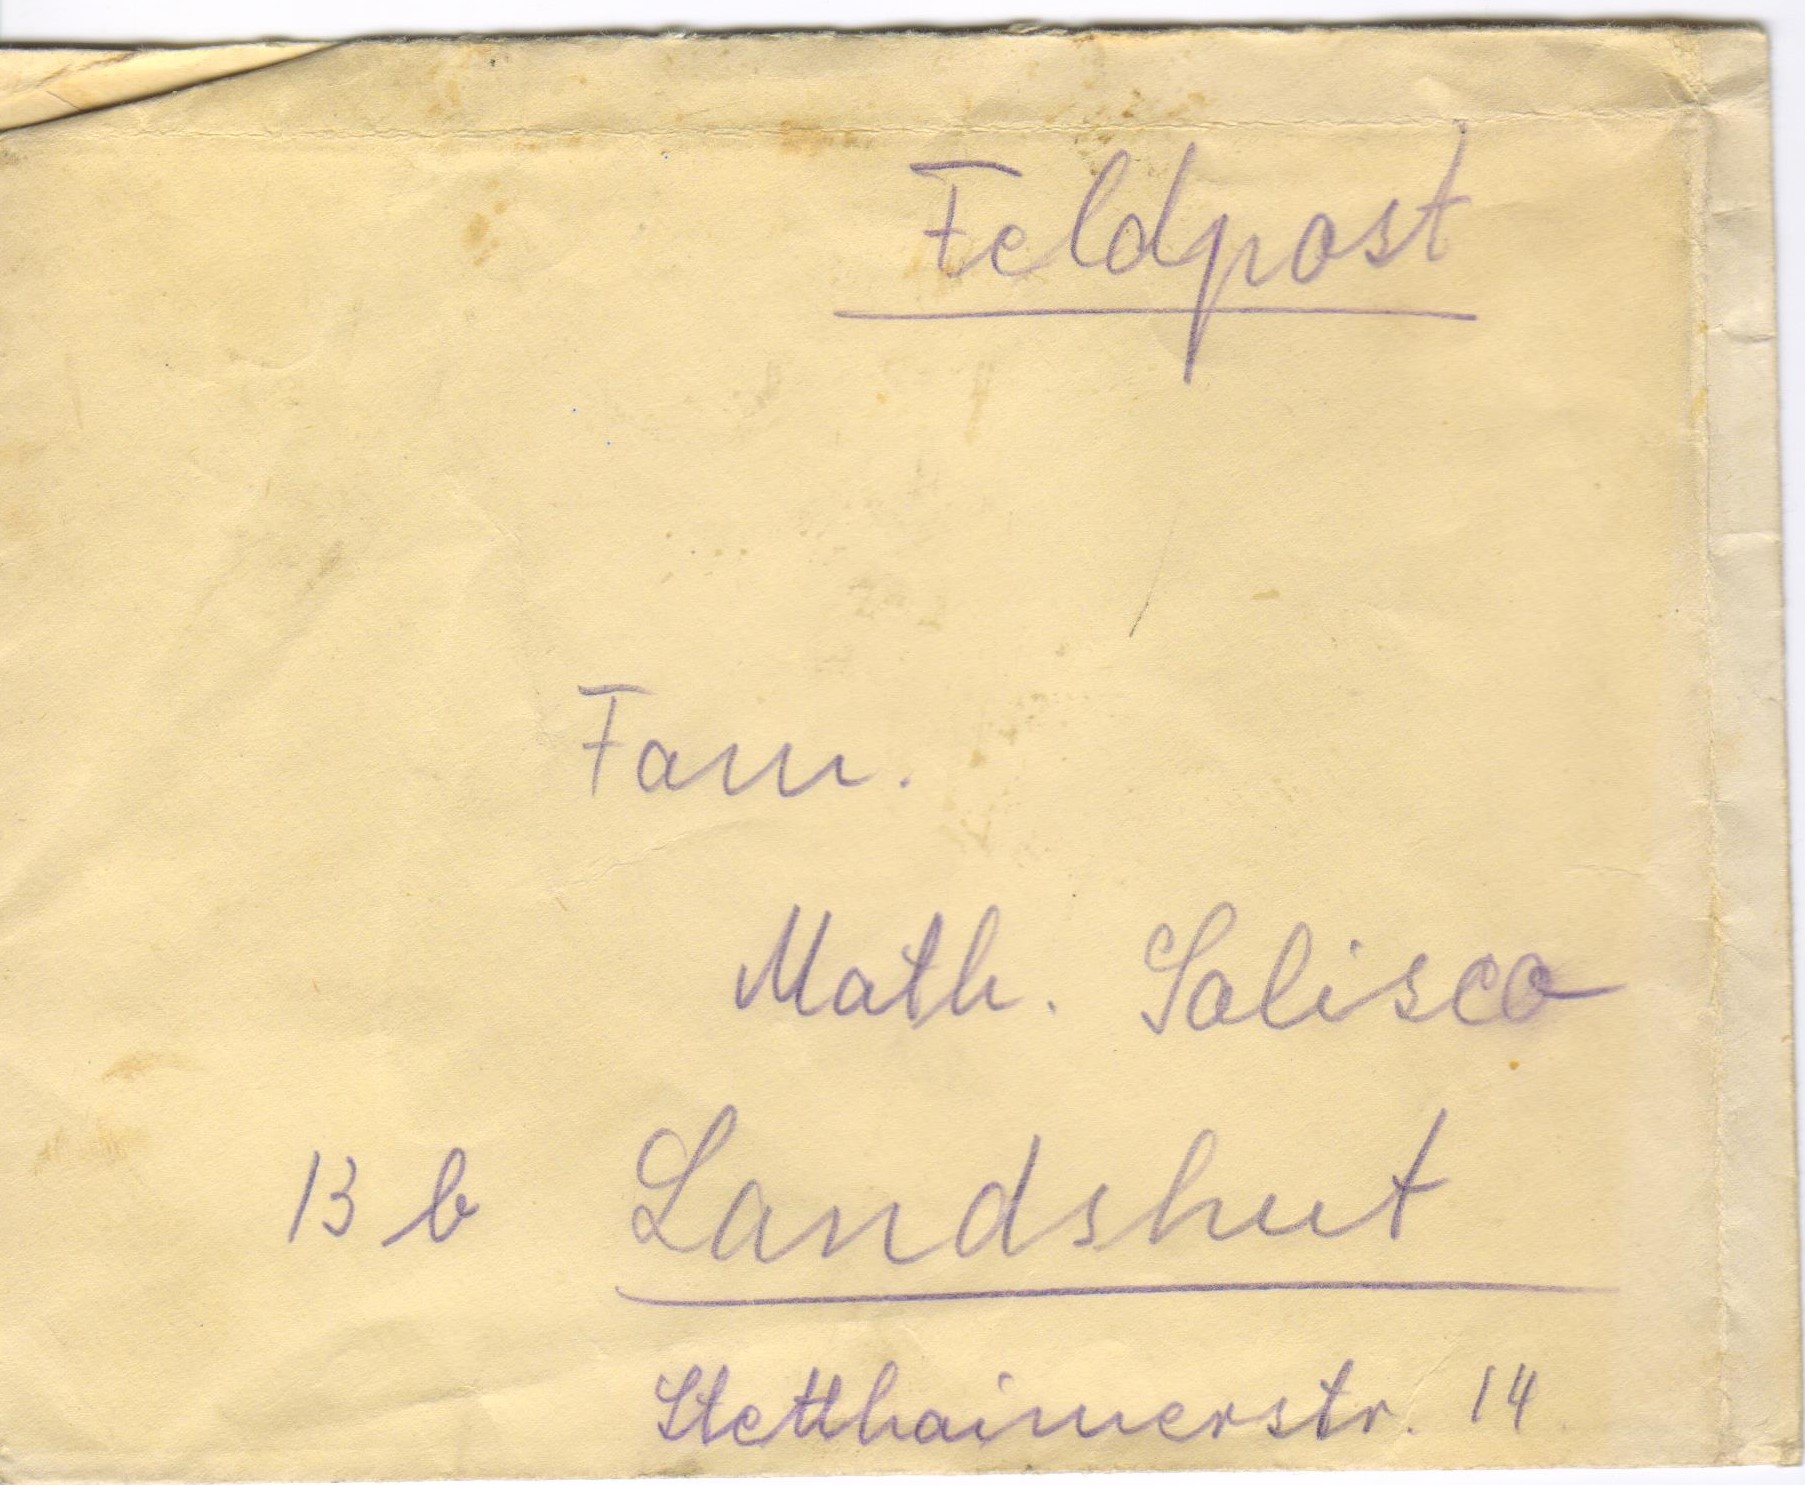 Feldpost
Fam.
Math. Salisco
13 b Landshut
Stetthaimerstr. 14